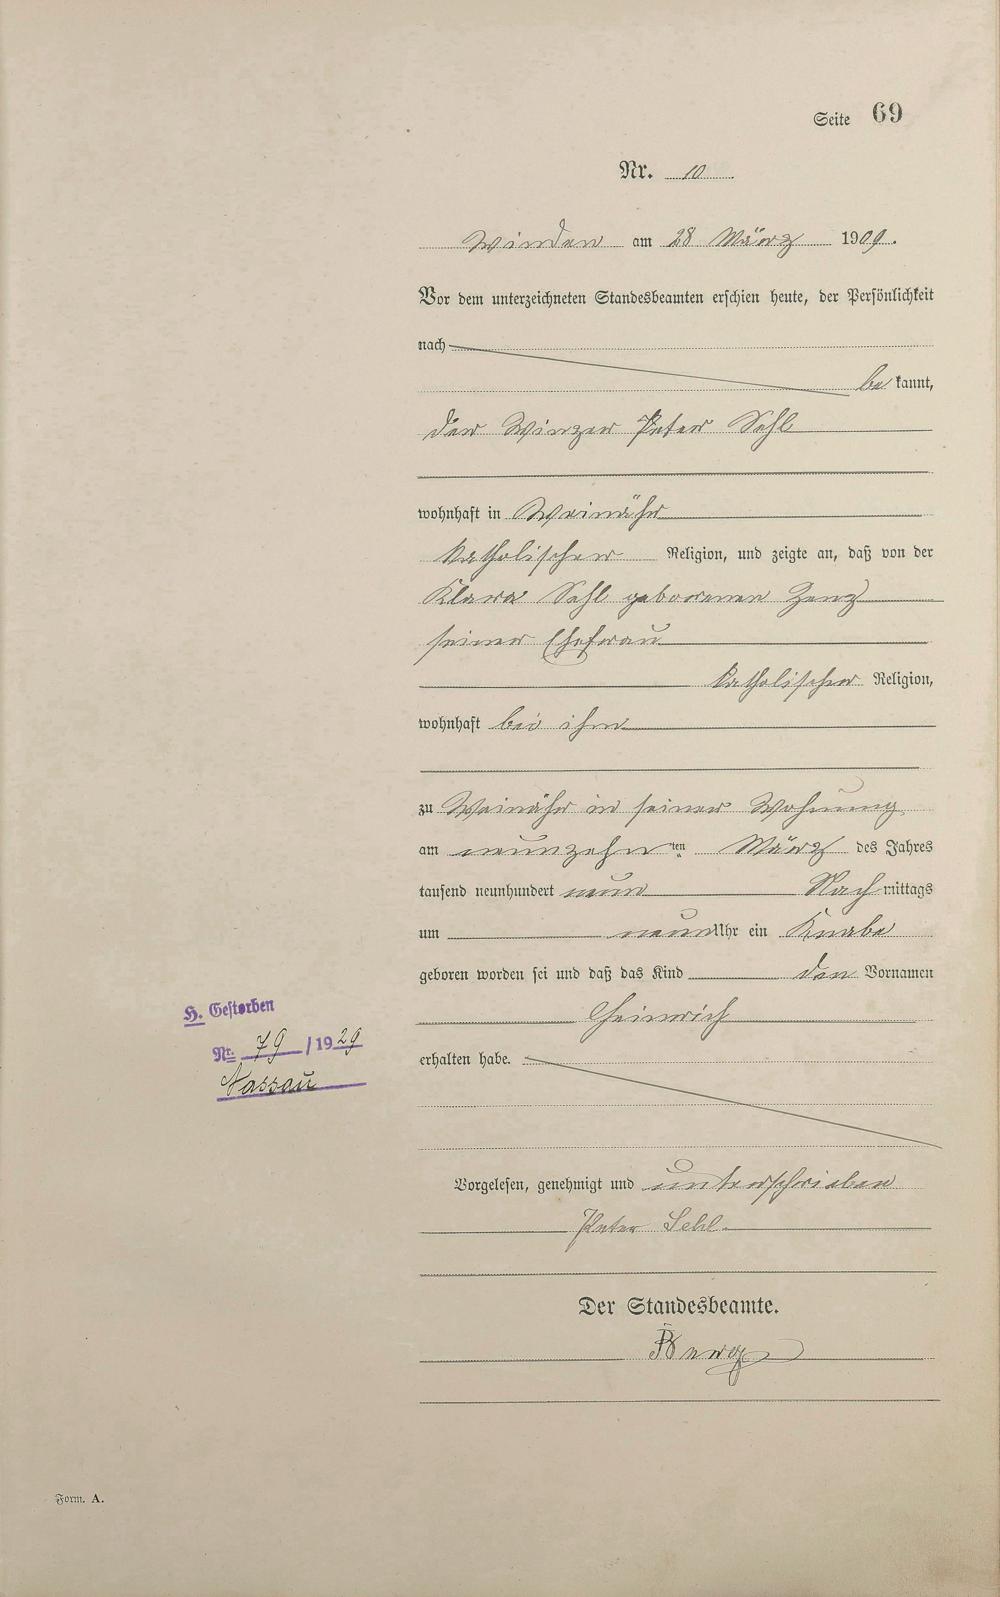 Seite 69
Nr. 10
Winden am 28 März 1909.
Vor dem unterzeichneten Standesbeamten erschien heute, der Persönlichkeit
nach
be kannt,
der Winzer Peter Sehl
wohnhaft in Weinähr
katholischer Religion, und zeigte an, daß von der
Klara Sehl geborenen Zenz
seiner Ehefrau
katholischer Religion,
wohnhaft bei ihm
zu Weinähr in seiner Wohnung
am neunzehn ten März des Jahres
tausend neunhundert neun Nach mittags
um neun Uhr ein Knabe
geboren worden sei und daß das Kind den Vornamen
Heinrich
erhalten habe.
H. Gestorben
Nr. 79 / 1929
Nassau
Vorgelesen, genehmigt und unterschrieben
Peter Sehl.
Der Standesbeamte.
Form. A.